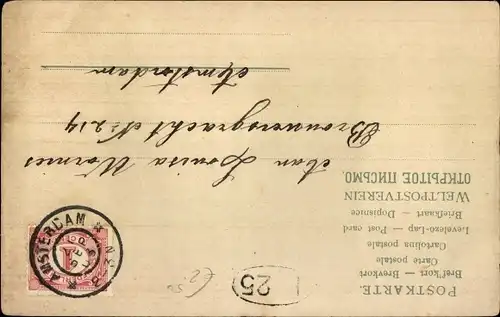 POSTKARTE.
Bref'kort — Brevkort
Carte postale
Cartolina postale
Levelezo-Lap — Post card
Briefkaart — Dopisnice
WELTPOSTVEREIN
ОТКРЫТОЕ ПИСЬМО.
Aan Louisa Warmes
Brouwersgracht No 214
Amsterdam
AMSTERDAM
1
25
2 50